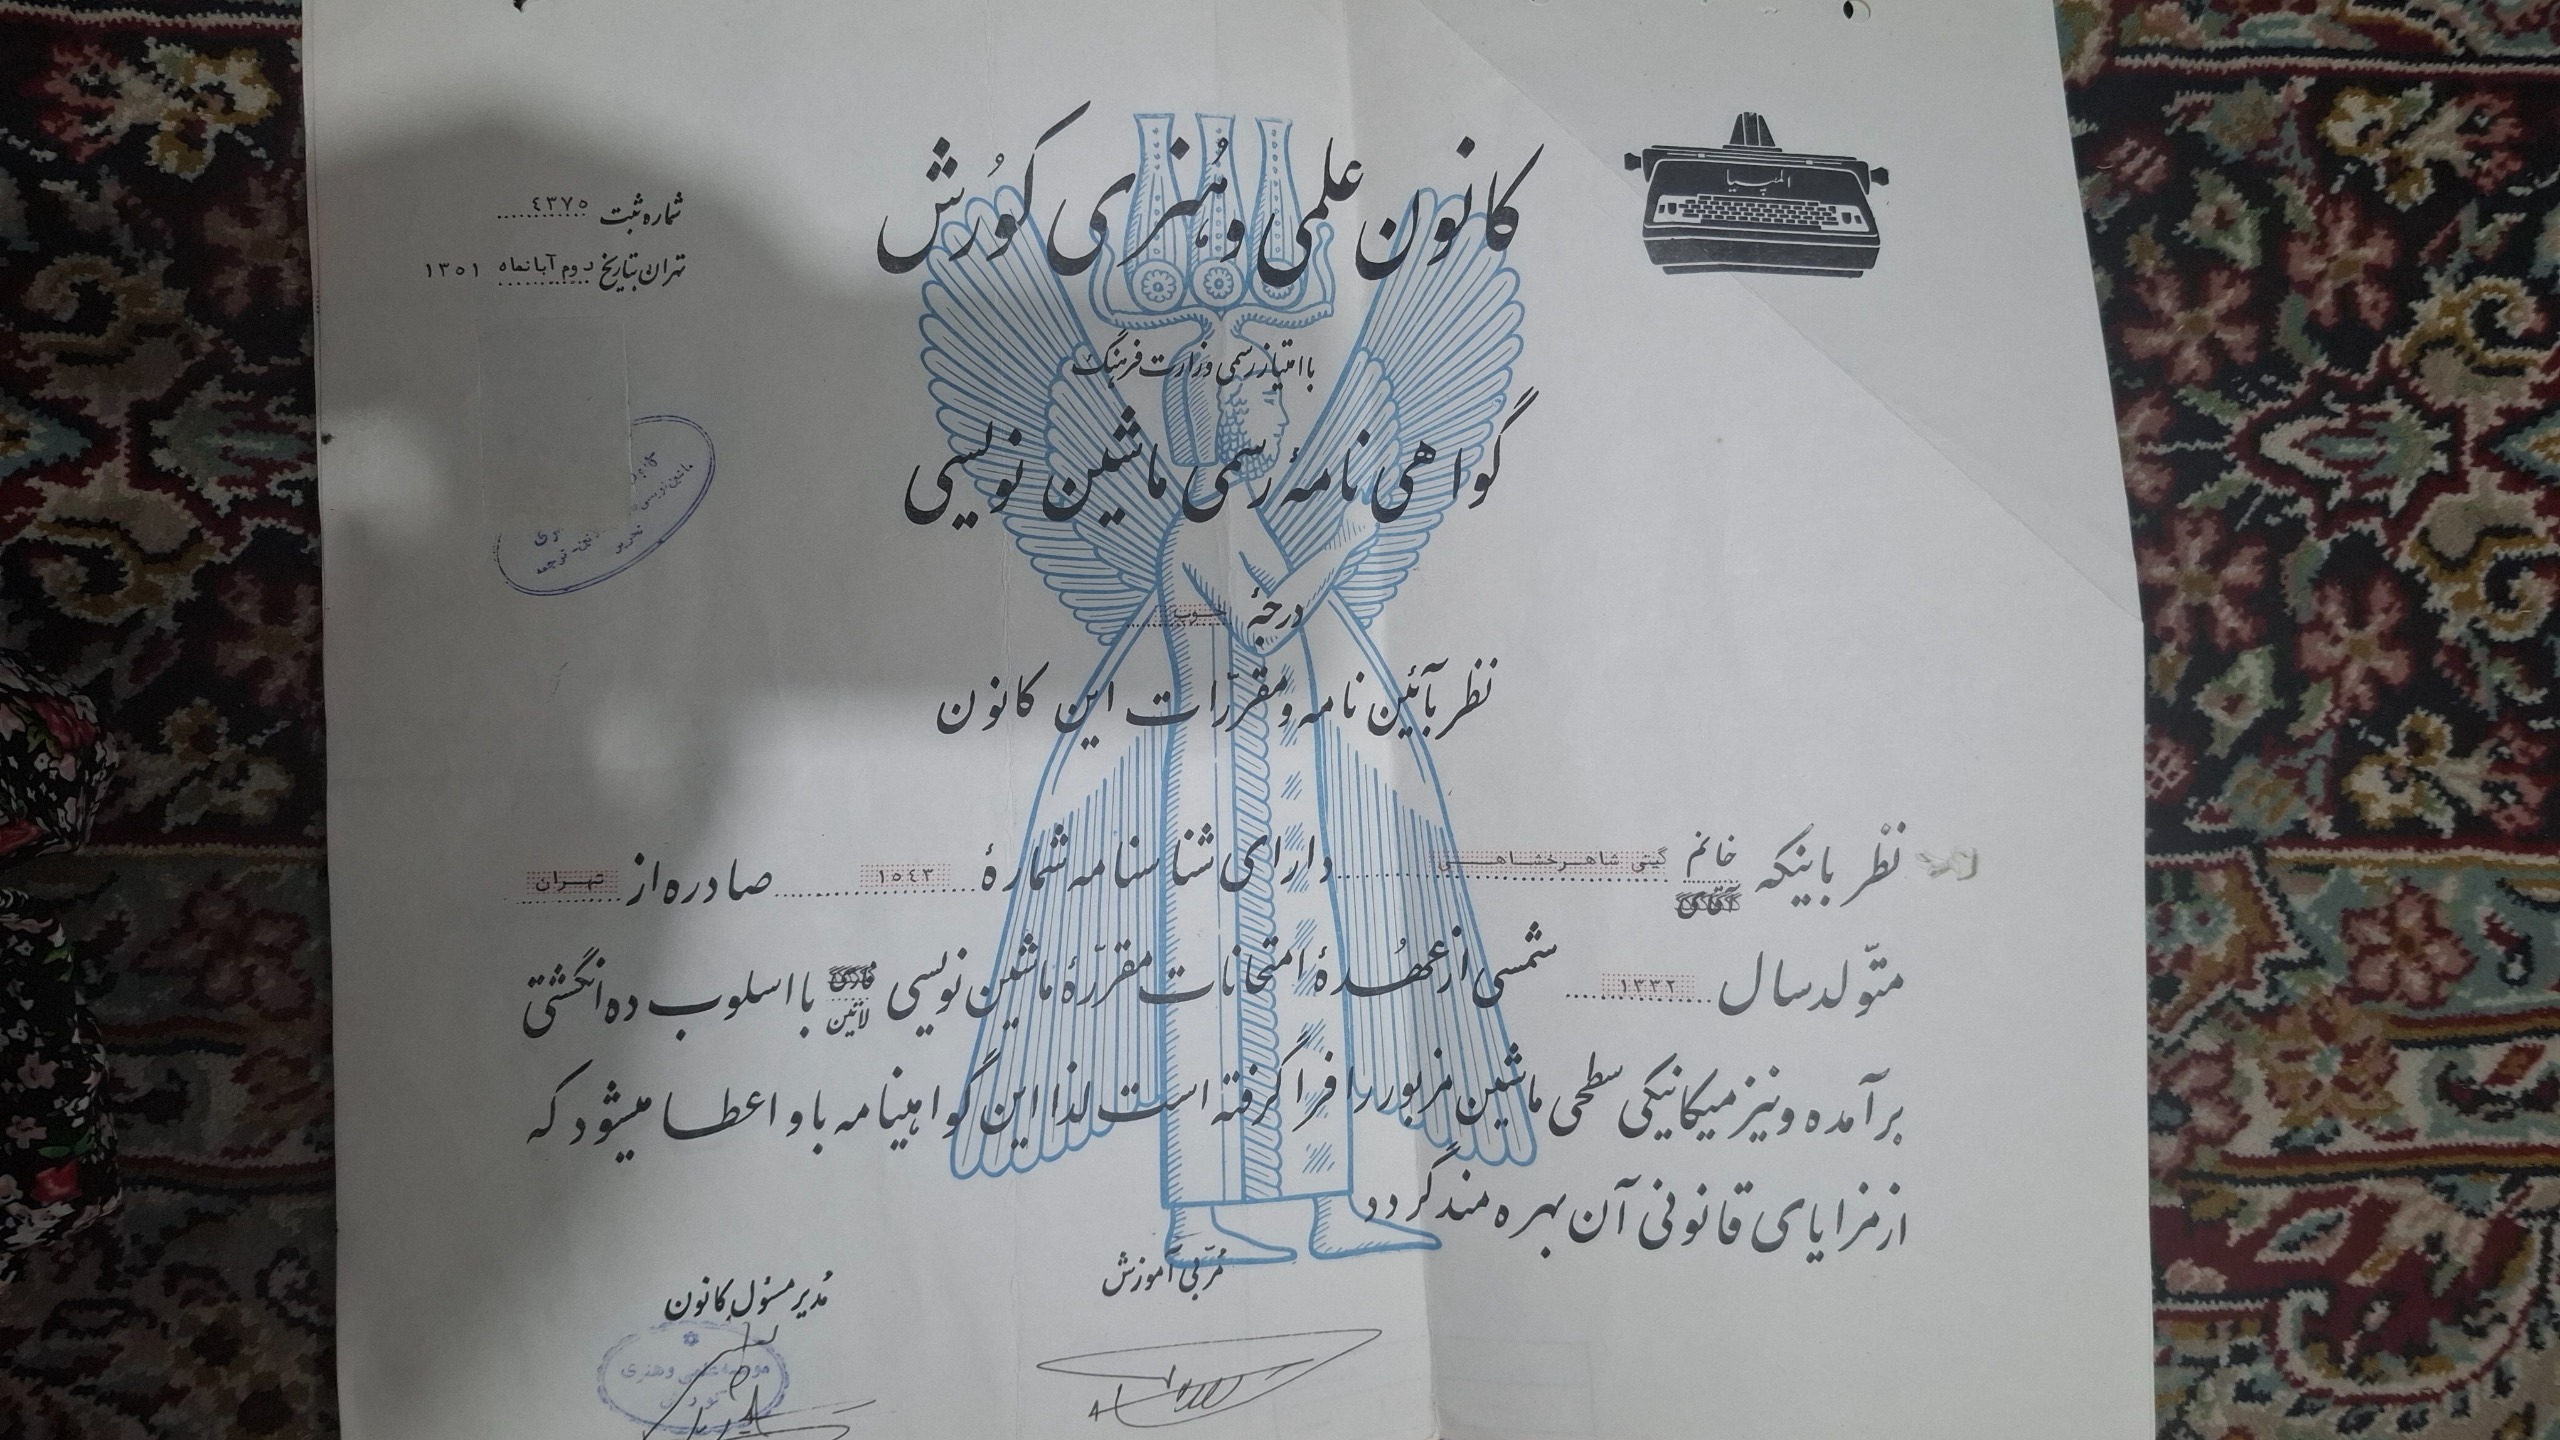 المپیا
کانون علمی و هنری کورش
شماره ثبت ٤٣٧٥
تهران بتاریخ دوم آبانماه ١٣٥١
با امتیاز رسمی وزارت فرهنگ
گواهی نامۀ رسمی ماشین نویسی
درجۀ خوب
نظر بآئین نامه و مقررّات این کانون
نظر باینکه خانم گیتی شاهرخشاهی دارای شناسنامه شمارۀ ١٥٤٣ صادره از تهران
آقای
متولّد سال ١٣٣٢ شمسی از عهُدۀ امتحانات مقررّۀ ماشین نویسی فارسی با اسلوب ده انگشتی
لاتین
برآمده و نیز میکانیکی سطحی ماشین مزبور را فرا گرفته است لذا این گواهینامه باو اعطا میشود که
از مزایای قانونی آن بهره مند گردد
مُربّی آموزش
مُدیر مسئول کانون
موسسه علمی و هنری
کورش